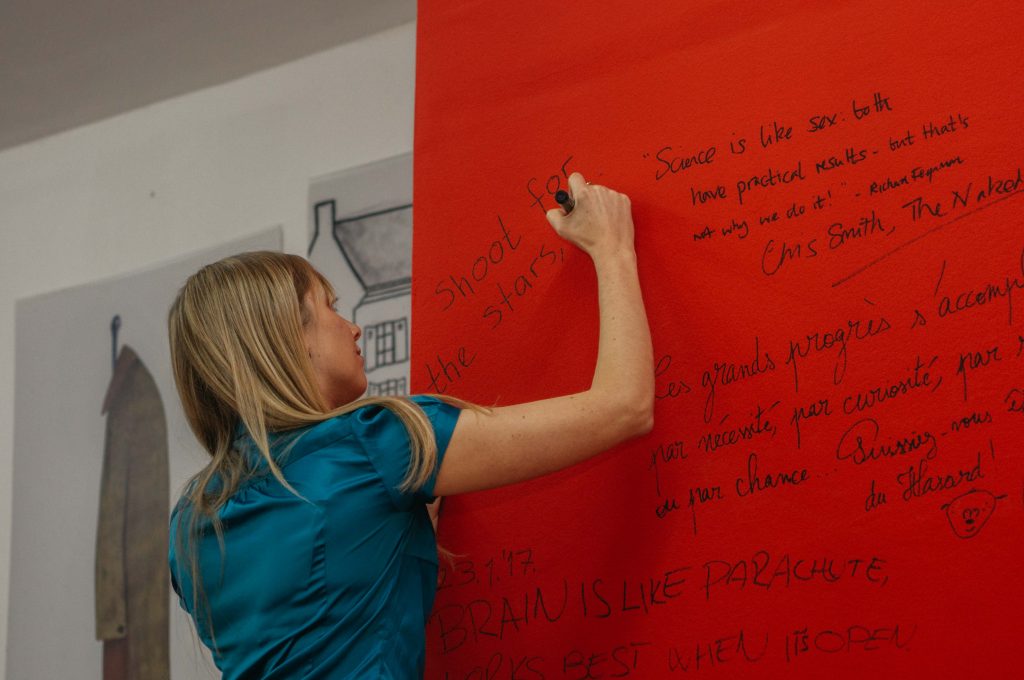 shoot for
the stars,
"Science is like sex: both
have practical results - but that's
not why we do it!" - Richard Feynman
Chris Smith, The Naked
Les grands progrès s'accomp
par nécessité, par curiosité, par
ou par chance... Puissiez-vous
du Hasard!
23.1.'17.
"BRAIN IS LIKE PARACHUTE,
WORKS BEST WHEN IT'S OPEN